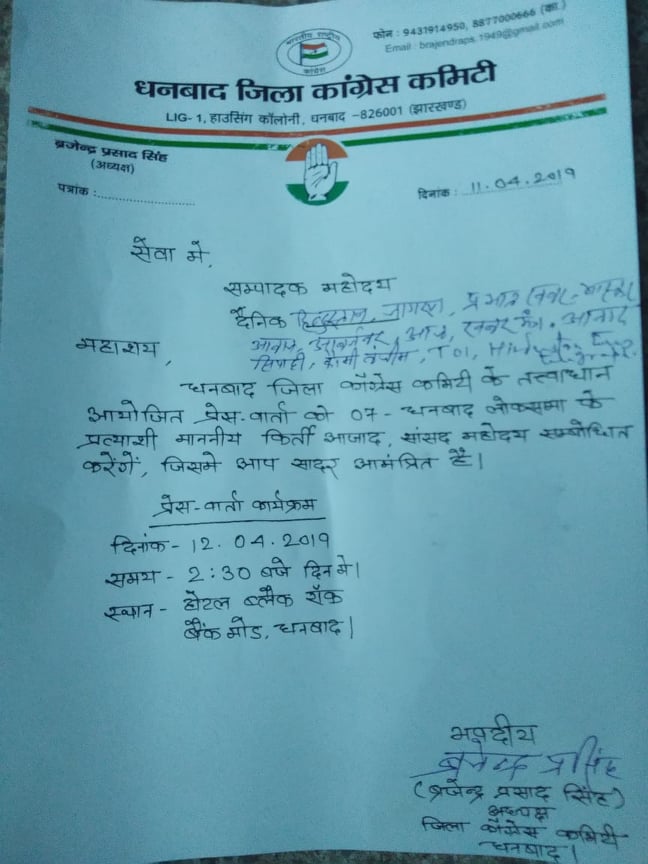 फोन : 9431914950, 8877000666 (का.)
Email : brajendraps.1949@gmail.com
भारतीय राष्ट्रीय
कांग्रेस
धनबाद जिला कांग्रेस कमिटी
LIG- 1, हाउसिंग कॉलोनी, धनबाद -826001 (झारखण्ड)
ब्रजेन्द्र प्रसाद सिंह
(अध्यक्ष)
पत्रांक :
दिनांक : 11.04.2019
सेवा मे,
सम्पादक महोदय
दैनिक हिन्दुस्तान, जागरण, प्रभात खबर, भास्कर
आवाज, आज, खबर मंत्र, आजाद
महाशय,
सिपाही, कौमी तंजीम, TOI, Hindustan
धनबाद जिला काँग्रेस कमिटी के तत्वाधान
आयोजित प्रेस-वार्ता को 07- धनबाद लोकसभा के
प्रत्याशी माननीय किर्ती आजाद, सांसद महोदय सम्बोधित
करेंगें, जिसमे आप सादर आमंत्रित है।
प्रेस-वार्ता कार्यक्रम
दिनांक - 12.04.2019
समय - 2:30 बजे दिन मे।
स्थान - होटल ब्लैक रॉक
बैंक मोड, धनबाद।
भवदीय
ब्रजेन्द्र प्र सिंह
(ब्रजेन्द्र प्रसाद सिंह)
अध्यक्ष
जिला काँग्रेस कमिटी
धनबाद।